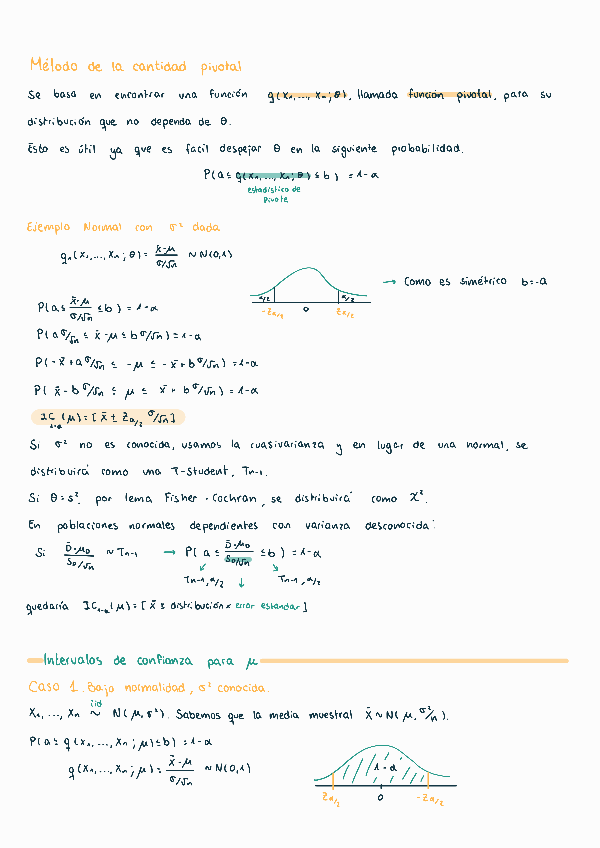 Método de la cantidad pivotal
Se basa en encontrar una función g(X₁,..., Xₙ; θ), llamada función pivotal, para su
distribución que no dependa de θ.
Esto es útil ya que es facil despejar θ en la siguiente probabilidad.
P(a ≤ g(X₁,..., Xₙ; θ) ≤ b) = 1-α
estadístico de
pivote
Ejemplo Normal con σ² dada
gₙ(X₁,..., Xₙ; θ) = (x̄-μ)/(σ/√n) ~ N(0,1)
α/2 α/2 → Como es simétrico b=-a
-Zα/2 0 Zα/2
P(a ≤ (x̄-μ)/(σ/√n) ≤ b) = 1-α
P(a σ/√n ≤ x̄-μ ≤ b σ/√n) = 1-α
P(-x̄+a σ/√n ≤ -μ ≤ -x̄+b σ/√n) = 1-α
P(x̄-b σ/√n ≤ μ ≤ x̄+b σ/√n) = 1-α
IC₁₋α(μ) = [x̄ ± Zα/2 σ/√n]
Si σ² no es conocida, usamos la cuasivarianza y en lugar de una normal, se
distribuirá como una T-Student, Tₙ₋₁.
Si θ=s², por lema Fisher-Cochran, se distribuirá como χ².
En poblaciones normales dependientes con varianza desconocida:
Si (D̄-μ_D)/(S_D/√n) ~ Tₙ₋₁ → P(a ≤ (D̄-μ_D)/(S_D/√n) ≤ b) = 1-α
Tₙ₋₁,α/2 ↓ Tₙ₋₁,α/2
quedaría IC₁₋α(μ) = [x̄ ± distribución × error estandar]
Intervalos de confianza para μ
Caso 1. Bajo normalidad, σ² conocida.
X₁,..., Xₙ iid ~ N(μ,σ²). Sabemos que la media muestral X̄ ~ N(μ, σ²/n).
P(a ≤ g(X₁,..., Xₙ; μ) ≤ b) = 1-α
g(X₁,..., Xₙ; μ) = (X̄-μ)/(σ/√n) ~ N(0,1)
1-α
Zα/2 0 -Zα/2